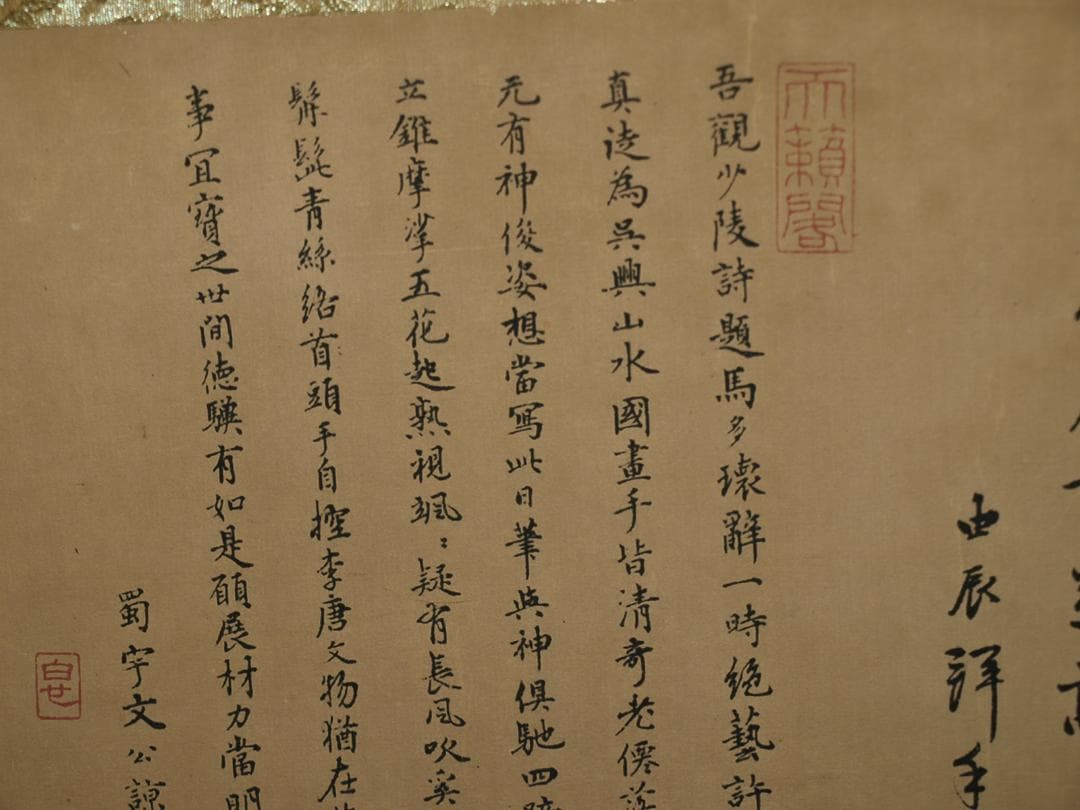 由辰拜手
天籟閣
吾觀少陵詩題馬多瓌辭一時絕藝許
真迹為吳興山水國畫手皆清奇老僊落
元有神俊姿想當寫此日筆與神俱馳四蹄
立錐摩挲五花起熟視颯：疑有長風吹奚
髯髭青絲絡首頭手自控李唐文物猶在
事宜寶之世間德驥有如是願展材力當明
蜀宇文公諒